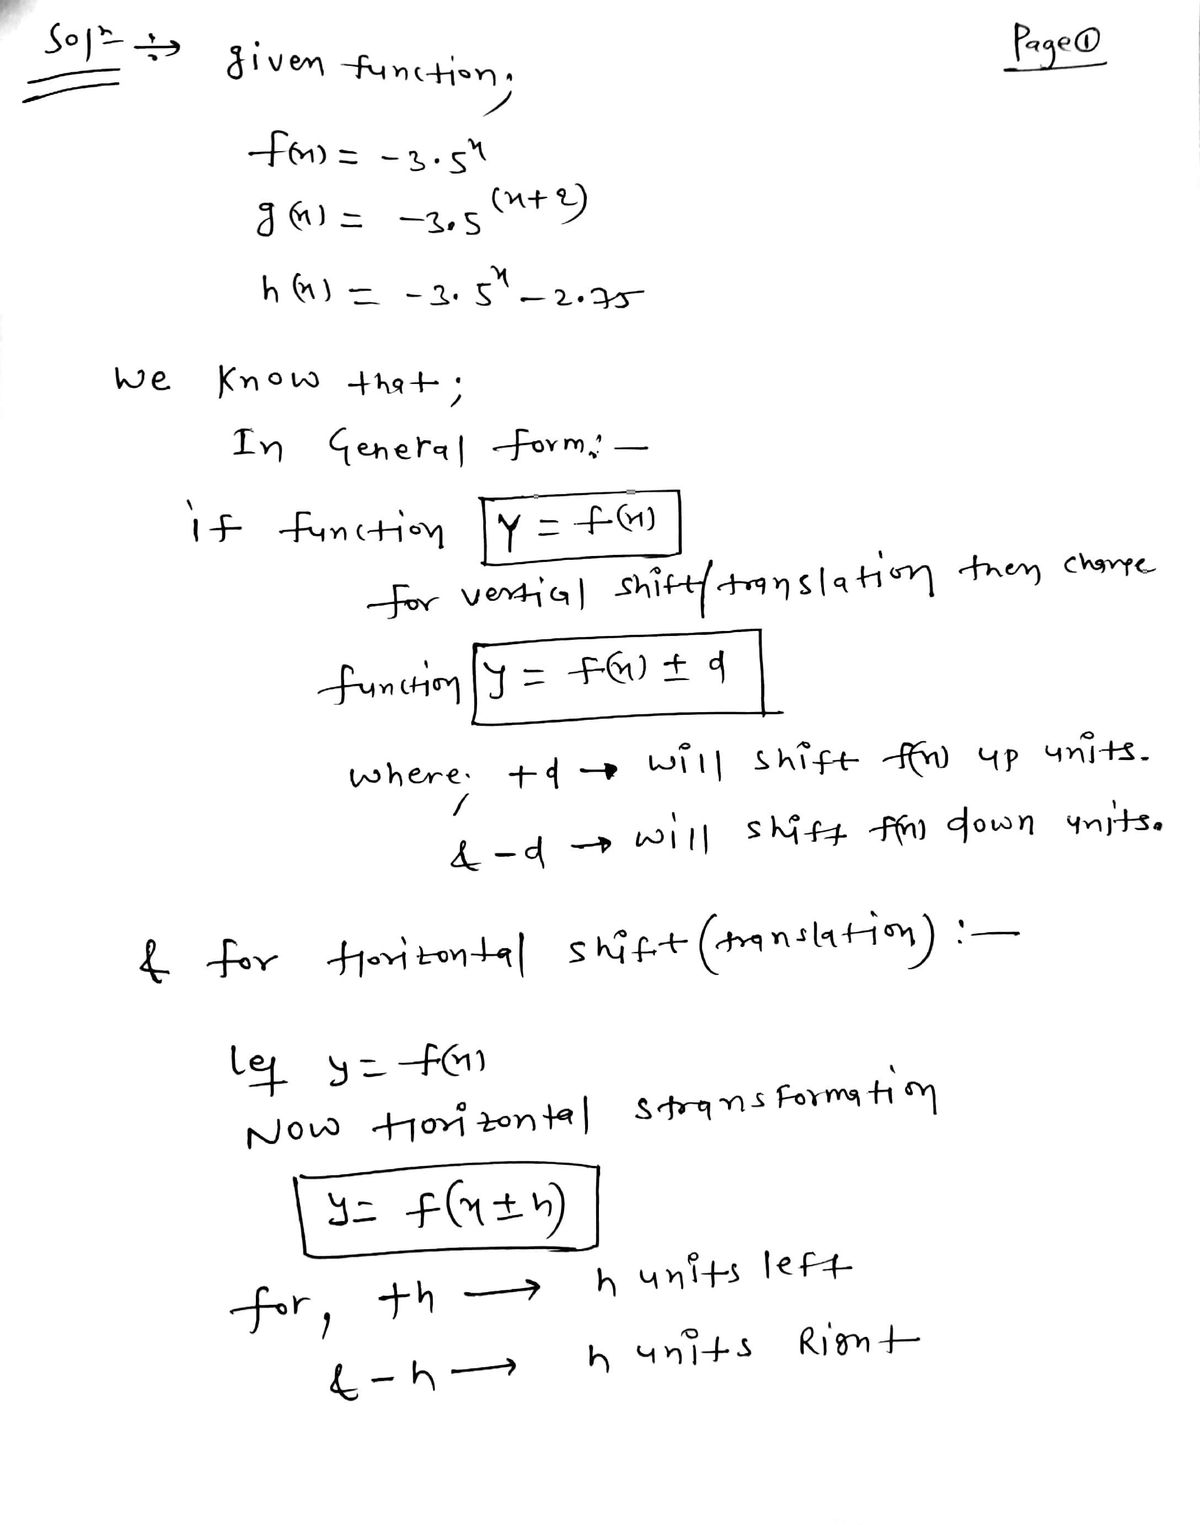 Solⁿ ÷→ given function;
Page ①
f(x) = -3·5ˣ
g(x) = -3·5⁽ˣ⁺²⁾
h(x) = -3·5ˣ - 2.75
We Know that;
In General form:—
if function Y = f(x)
for vertical shift/translation then change
function y = f(x) ± d
where, +d → will shift f(x) up units.
& -d → will shift f(x) down units.
& for Horizontal shift (translation) :—
Let y = f(x)
Now Horizontal stransformation
y = f(x ± h)
for, +h → h units left
& -h → h units Right